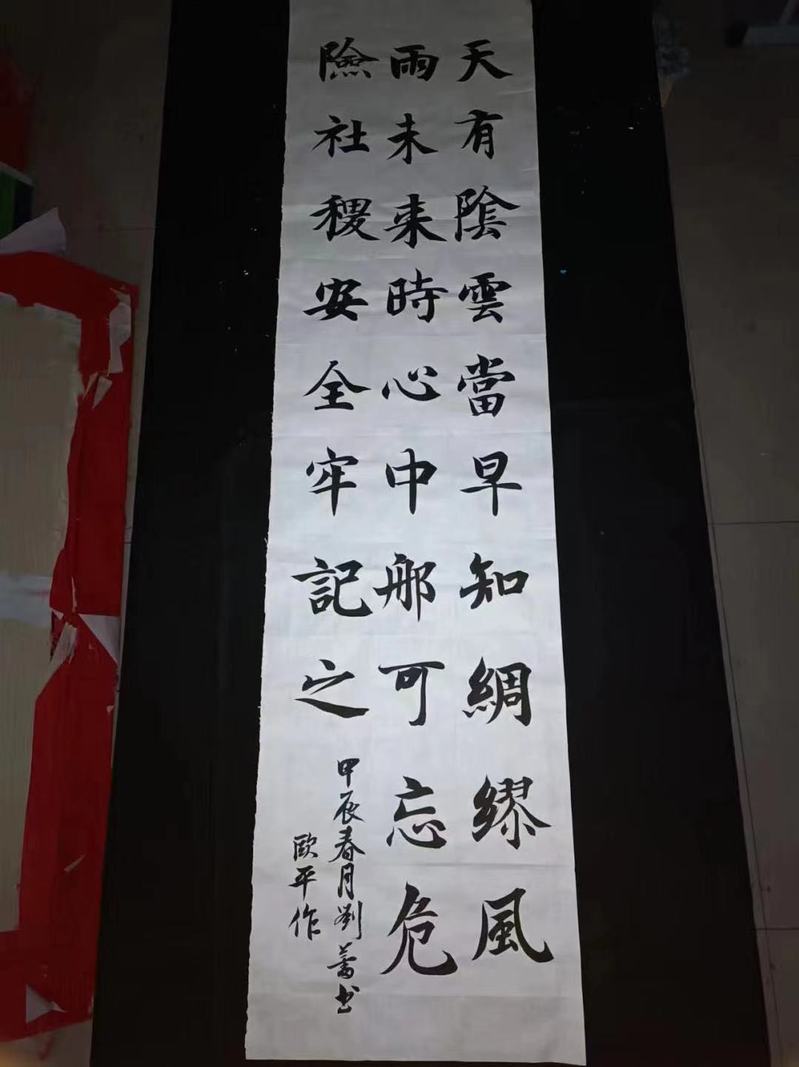 天有陰雲當早知綢繆風
雨未来時心中那可忘危
險社稷安全牢記之
甲辰春月劉書
歐平作